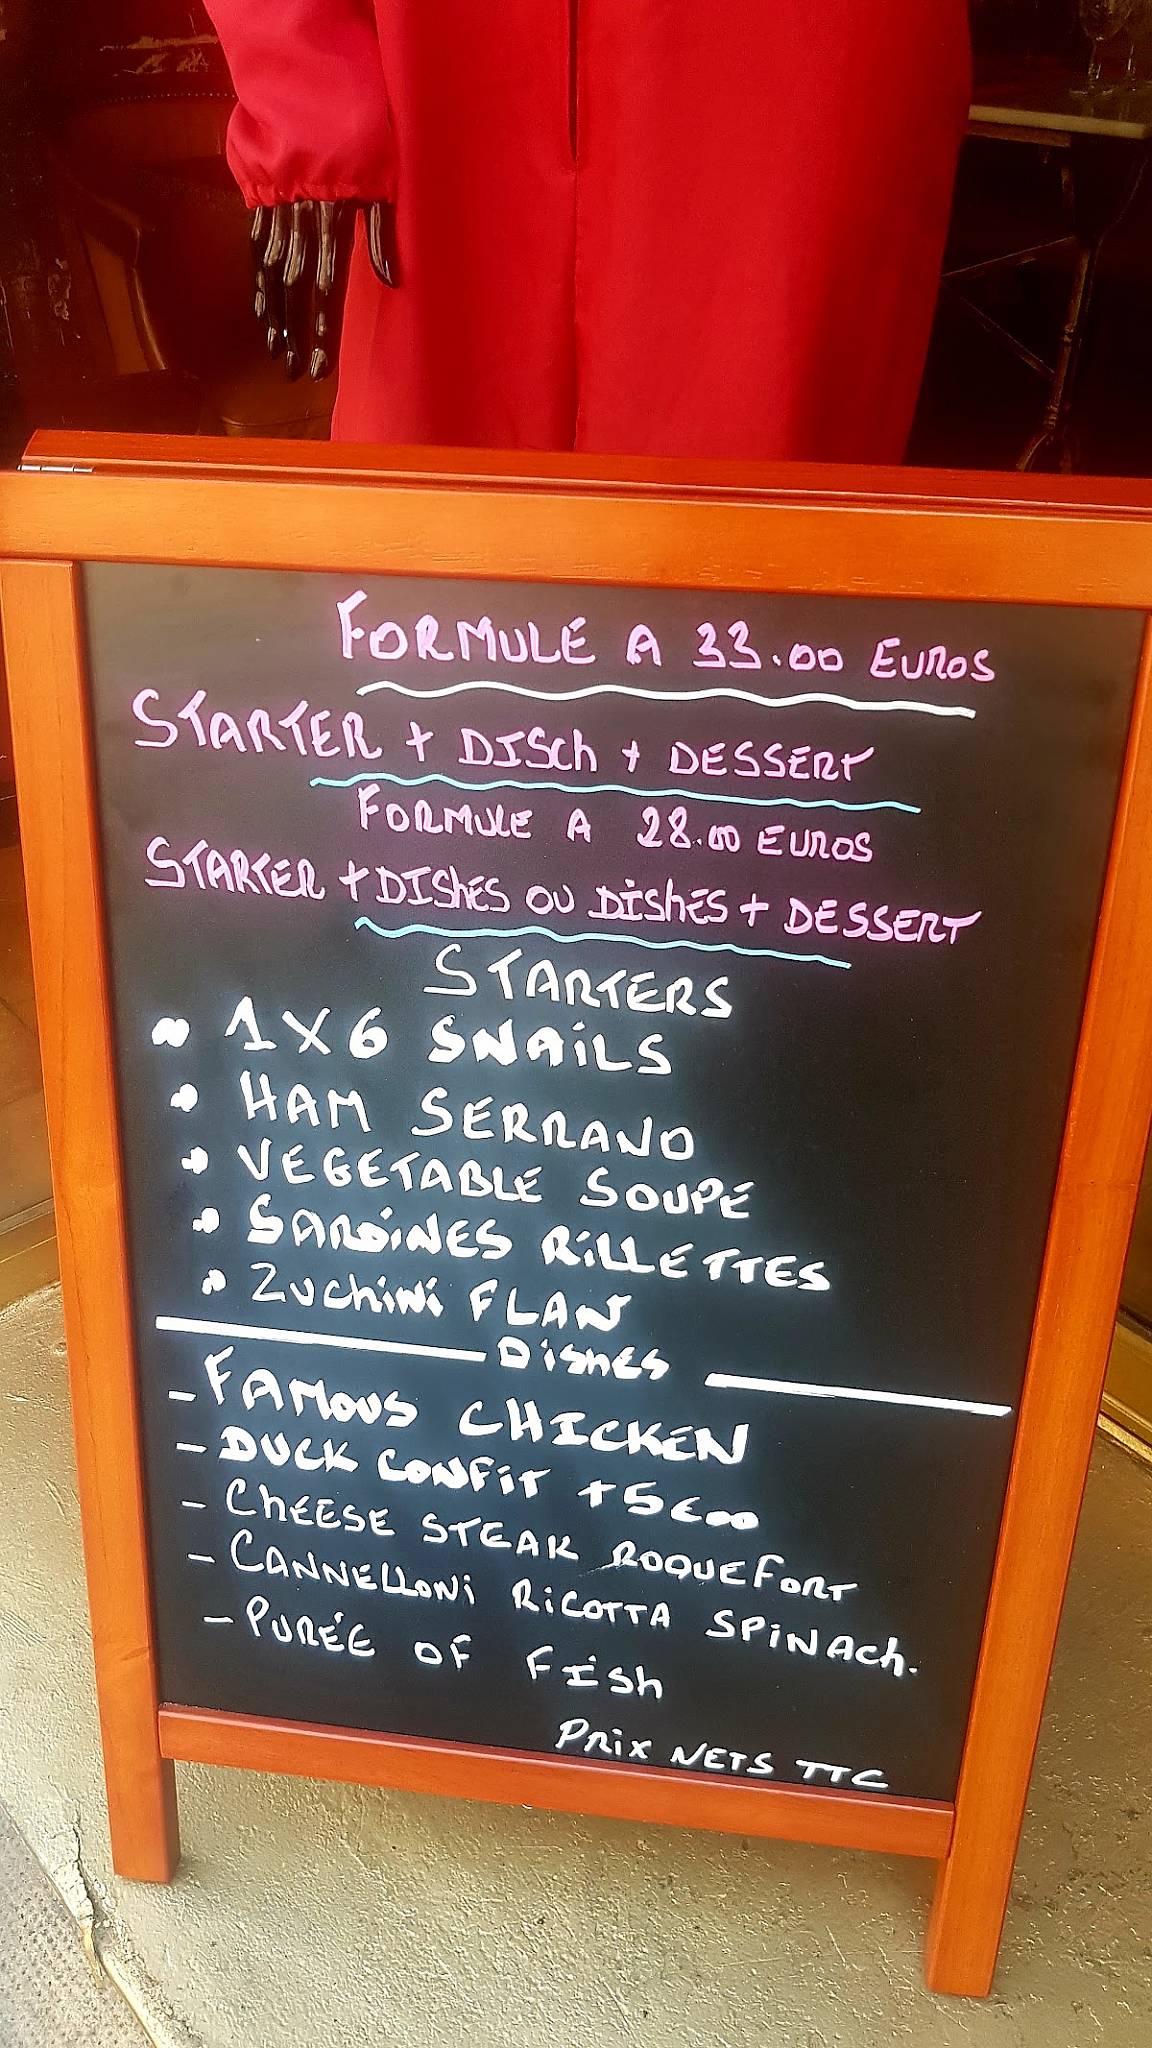 FORMULE A 33.00 EUROS
STARTER + DISCH + DESSERT
FORMULE A 28.00 EUROS
STARTER + DISHES OU DISHES + DESSERT
STARTERS
• 1X6 SNAILS
• HAM SERRANO
• VEGETABLE SOUPE
• SARDINES RILLETTES
• ZUCHINI FLAN
DISHES
- FAMOUS CHICKEN
- DUCK CONFIT +5€00
- CHEESE STEAK ROQUEFORT
- CANNELLONI RICOTTA SPINACH.
- PURÉE OF FISH
PRIX NETS TTC